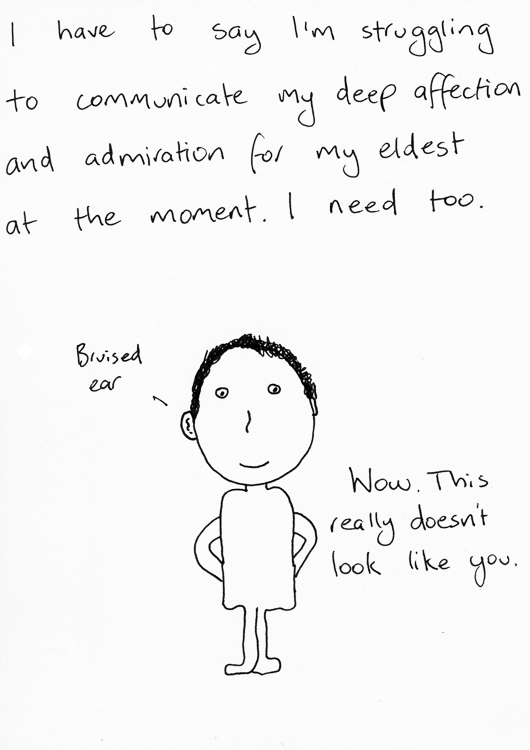 I have to say I'm struggling
to communicate my deep affection
and admiration for my eldest
at the moment. I need too.
Bruised
ear
Wow. This
really doesn't
look like you.